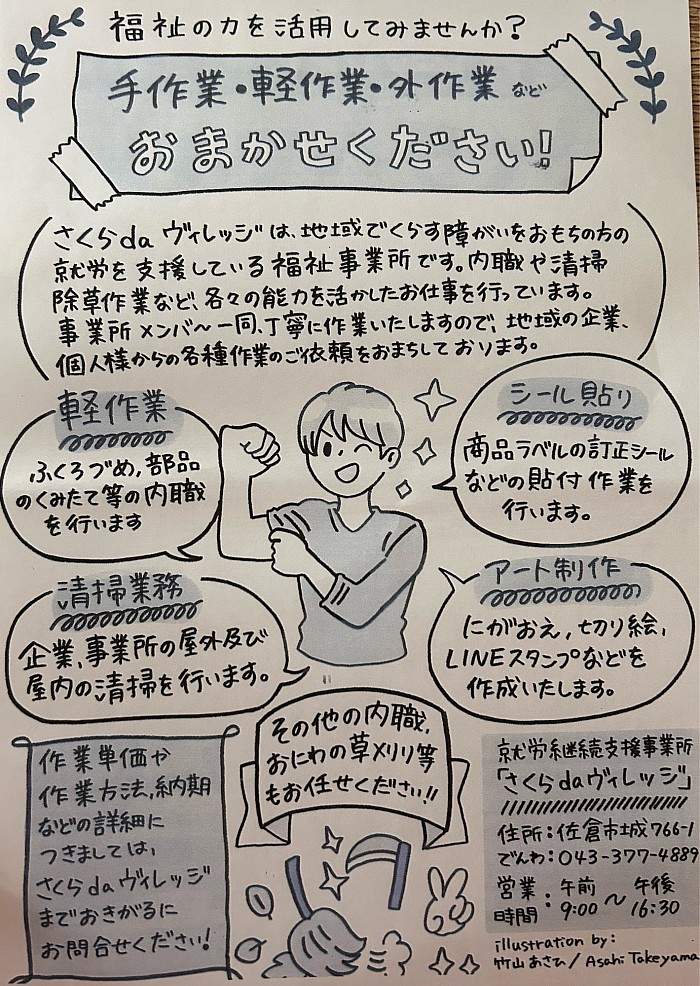 福祉の力を活用してみませんか?
手作業・軽作業・外作業 など
おまかせください!
さくらdaヴィレッジは、地域でくらす障がいをおもちの方の
就労を支援している福祉事業所です。内職や清掃
除草作業など、各々の能力を活かしたお仕事を行っています。
事業所メンバー一同、丁寧に作業いたしますので、地域の企業、
個人様からの各種作業のご依頼をおまちしております。
軽作業
ふくろづめ,部品
のくみたて等の内職
を行います
シール貼り
商品ラベルの訂正シール
などの貼付作業を
行います。
清掃業務
企業、事業所の屋外及び
屋内の清掃を行います。
アート制作
にがおえ,切り絵,
LINEスタンプなどを
作成いたします。
その他の内職,
おにわの草メリリ等
もお任せください!!
作業単価や
作業方法、納期
などの詳細に
つきましては、
さくらdaヴィレッジ
までおきがるに
お問合せください!
就労継続支援事業所
「さくらdaヴィレッジ」
住所:佐倉市城766-1
でんわ:043-377-4889
営業時間:午前9:00~午後16:30
illustration by:
竹山あさひ/Asahi Takeyama